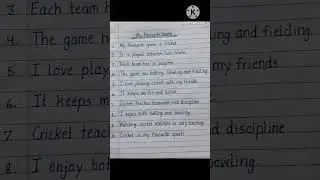 3. Each team h
4. The game ha
5. I love playi
6. It keeps me
7. Cricket teac
8. I enjoy bot
My Favourite Game
1. My favourite game is cricket.
2. It is played between two teams.
3. Each team has 11 players.
4. The game has batting, bowling and fielding.
5. I love playing cricket with my friends.
6. It keeps me fit and active.
7. Cricket teaches teamwork and discipline.
8. I enjoy both batting and bowling.
9. Watching cricket matches is very exciting.
10. Cricket is my favourite sport.
g and fielding
my friends
discipline
owling